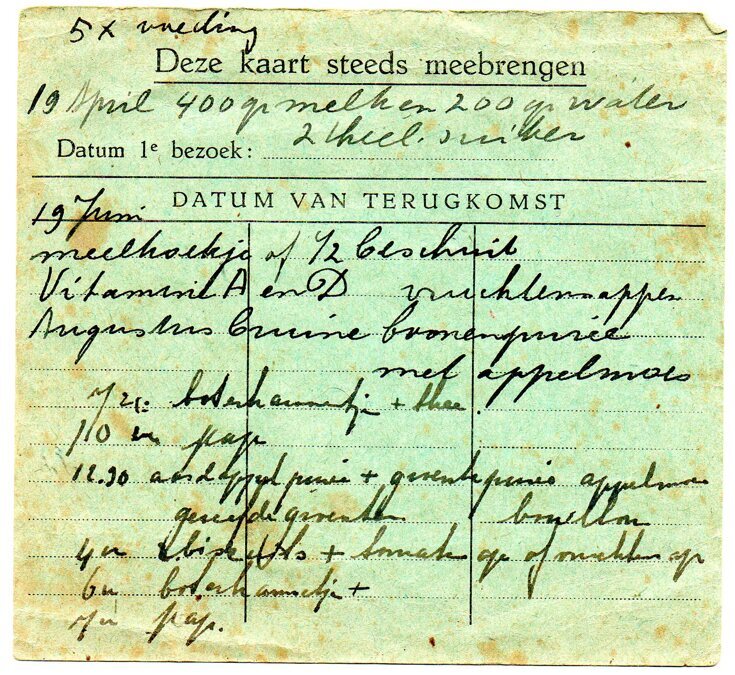 5x voeding
Deze kaart steeds meebrengen
19 April 400 gr melk en 200 gr water
2 theel. suiker
Datum 1e bezoek:
DATUM VAN TERUGKOMST
19 Juni
meelkoekje of 1/2 beschuit
Vitamine A en D vruchtensappen
Augustus bruine bonenpurée
met appelmoes
boterhammetje + thee.
10 u pap
12.30 aardappelpurée + groentepurée appelmoes
groenten bouillon
4 u 2 biscuits + tomaten sap of vruchten sap
6 u boterhammetje +
7 u pap.